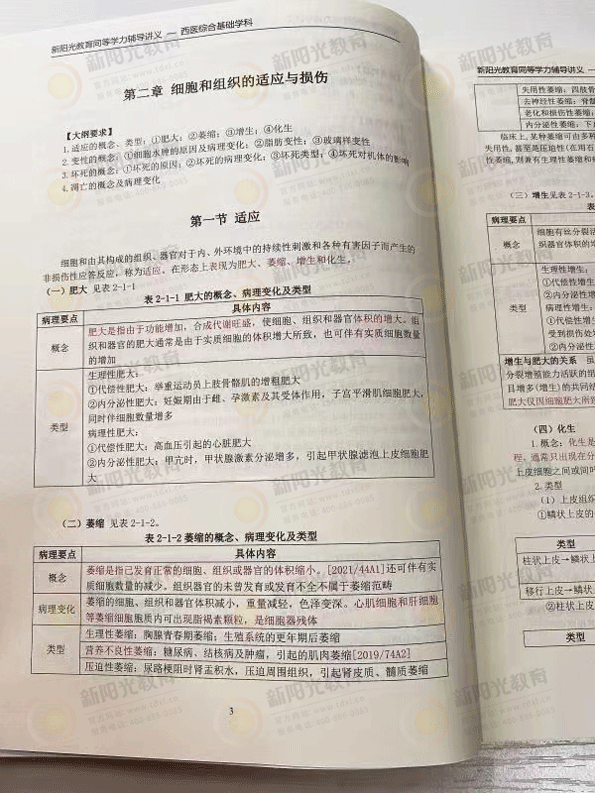 新阳光教育同等学力辅导讲义 — 西医综合基础学科
第二章 细胞和组织的适应与损伤
【大纲要求】
1. 适应的概念、类型：①肥大；②萎缩；③增生；④化生
2. 变性的概念：①细胞水肿的原因及病理变化；②脂肪变性；③玻璃样变性
3. 坏死的概念：①坏死的原因；②坏死的病理变化；③坏死类型；④坏死对机体的影响
4. 凋亡的概念及病理变化
第一节 适应
细胞和由其构成的组织、器官对于内、外环境中的持续性刺激和各种有害因子而产生的
非损伤性应答反应，称为适应。在形态上表现为肥大、萎缩、增生和化生。
（一）肥大 见表 2-1-1
表 2-1-1 肥大的概念、病理变化及类型
病理要点 具体内容
概念 肥大是指由于功能增加，合成代谢旺盛，使细胞、组织和器官体积的增大。组
织和器官的肥大通常是由于实质细胞的体积增大所致，也可伴有实质细胞数量
的增加
类型 生理性肥大：
①代偿性肥大：举重运动员上肢骨骼肌的增粗肥大
②内分泌性肥大：妊娠期由于雌、孕激素及其受体作用，子宫平滑肌细胞肥大，
同时伴细胞数量增多
病理性肥大：
①代偿性肥大：高血压引起的心脏肥大
②内分泌性肥大：甲亢时，甲状腺激素分泌增多，引起甲状腺滤泡上皮细胞肥
大
（二）萎缩 见表 2-1-2。
表 2-1-2 萎缩的概念、病理变化及类型
病理要点 具体内容
概念 萎缩是指已发育正常的细胞、组织或器官的体积缩小。[2021/44A1]还可伴有实
质细胞数量的减少。组织器官的未曾发育或发育不全不属于萎缩范畴
病理变化 萎缩的细胞、组织和器官体积减小，重量减轻，色泽变深。心肌细胞和肝细胞
等萎缩细胞胞质内可出现脂褐素颗粒，是细胞器残体
类型 生理性萎缩：胸腺青春期萎缩；生殖系统的更年期后萎缩
营养不良性萎缩：糖尿病、结核病及肿瘤，引起的肌肉萎缩[2019/74A2]
压迫性萎缩：尿路梗阻时肾盂积水，压迫周围组织，引起肾皮质、髓质萎缩
3
新阳光教育同等学力辅导讲义 —
失用性萎缩：四肢骨
去神经性萎缩：脊髓
老化和损伤性萎缩：
内分泌性萎缩：下
临床上，某种萎缩可由多种
失用性，甚至是压迫性(在用石
性萎缩，则兼有生理性萎缩和
（三）增生见表 2-1-3。
表
病理要点
概念 细胞有丝分裂活
织器官体积的增
类型 生理性增生：
①代偿性增生
②内分泌性增
病理性增生：
①代偿性增生
受到损伤处
②内分泌性增
增生与肥大的关系 虽
分裂增殖能力活跃的组
目增多(增生)的共同结
肥大仅因细胞肥大所致
（四）化生
1. 概念：化生是
程，通常只出现在分
上皮细胞之间或间叶
2. 类型
（1）上皮组织
①鳞状上皮的
类型
柱状上皮→鳞状上
移行上皮→鳞状上
②柱状上皮
类型
新阳光教育